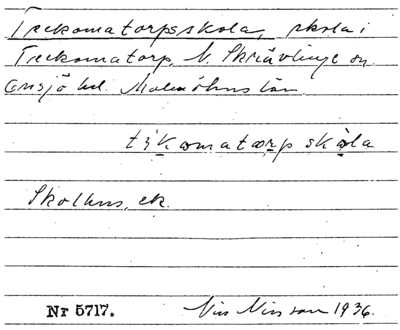 Treckomatorpsskola, skola i
Treckomatorp, N. Skrävlinge sn
Onsjö hd. Malmöhus län.
trkomatorp skola
Skolhus, ek.
Nr 5717. Nils Nilsson 1936.